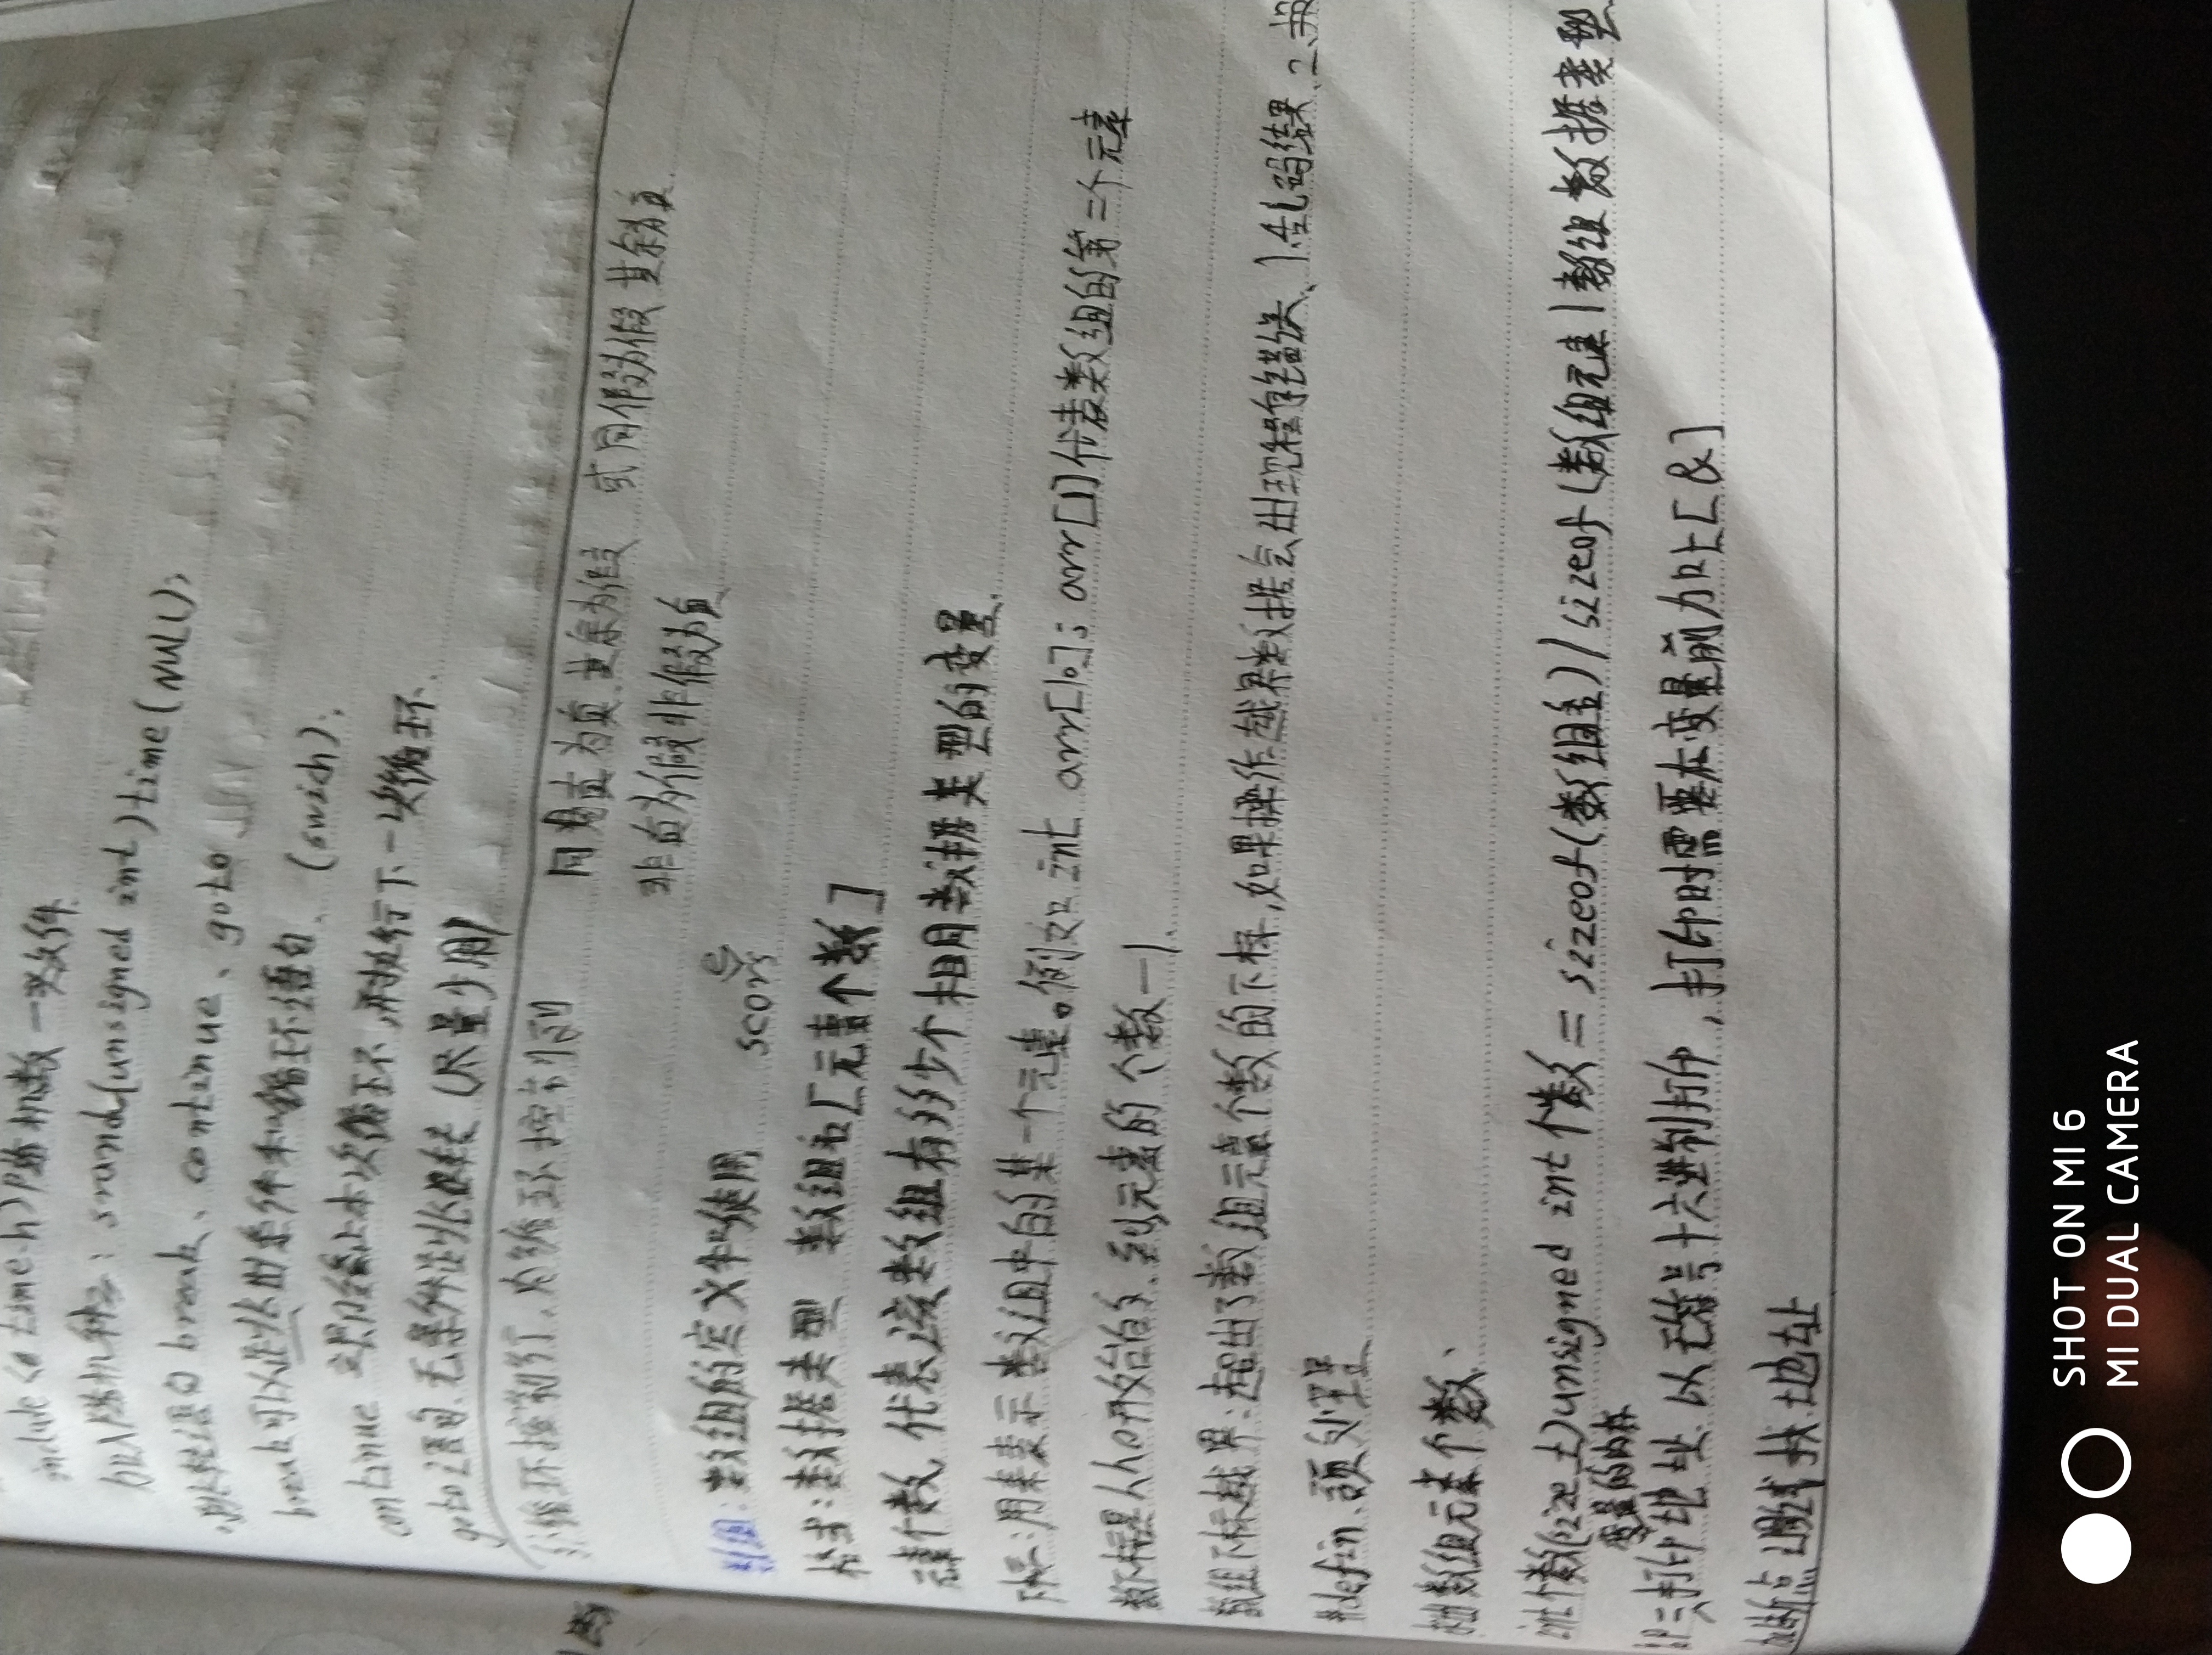 include <a time.h> 随机数一头文件.
srand(unsigned int)time(NULL);
跳转语句 break、continue、goto
break 可以让以世条件和循环语句、(swich).
continue 立即终止本次循环,再执行下一次循环.
goto 语句 无条件 (尽量少用)
循环控制
同真为真 其余为假 或同假为假 其余为真.
非真为假非假为真
数组: 数组的定义和使用 scors e
格式:数据类型 数组名[元素个数]
元素个数,代表该数组有多少个相同数据类型的变量.
下标:用来表示数组中的某一个元素。例如 int arr[10]; arr[1]代表数组的第二个元素
数下标是从0开始的.到元素的个数-1.
数组下标越界:超出了数组元素个数的下标,如果操作越界数据会出现程序错误、1.乱码结果 2.
#defin 预处理
求出数组元素个数、
int个数(size_t)unsigned int 个数 = sizeof(数组名)/sizeof(数组元素|数组数据类型
变量的内存
%p 打印地址 以无符号十六进制打印,打印时需要在变量前加上[&]
断点调试 找地址
SHOT ON MI 6
MI DUAL CAMERA